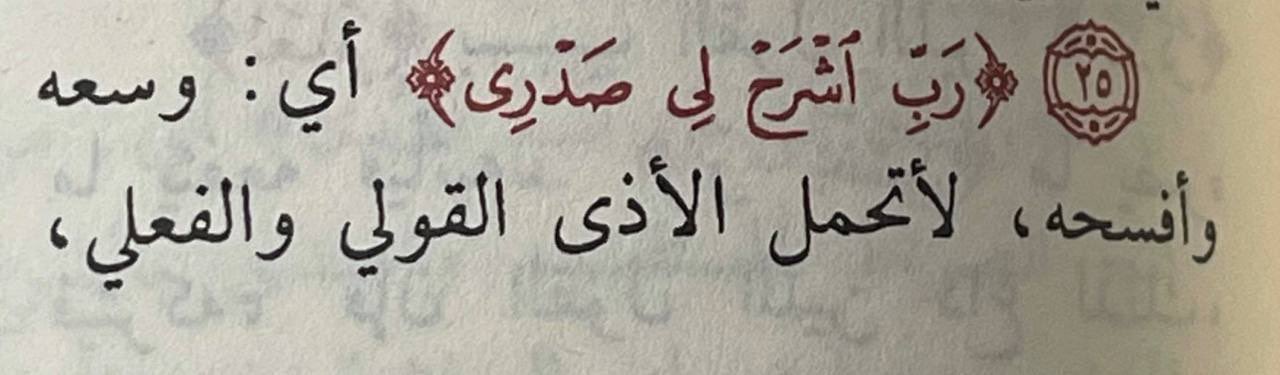 ٢٥ ﴿رَبِّ ٱشْرَحْ لِي صَدْرِى﴾ أي: وسعه
وأفسحه، لأتحمل الأذى القولي والفعلي،